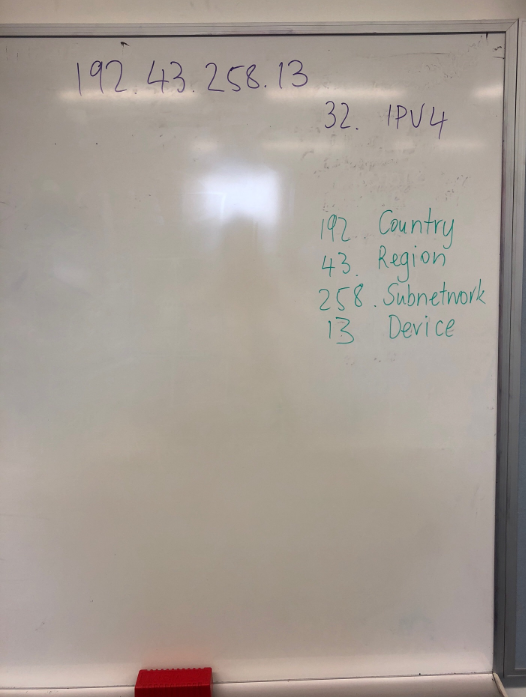 192.43.258.13
32. IPV4
192. Country
43. Region
258. Subnetwork
13 Device